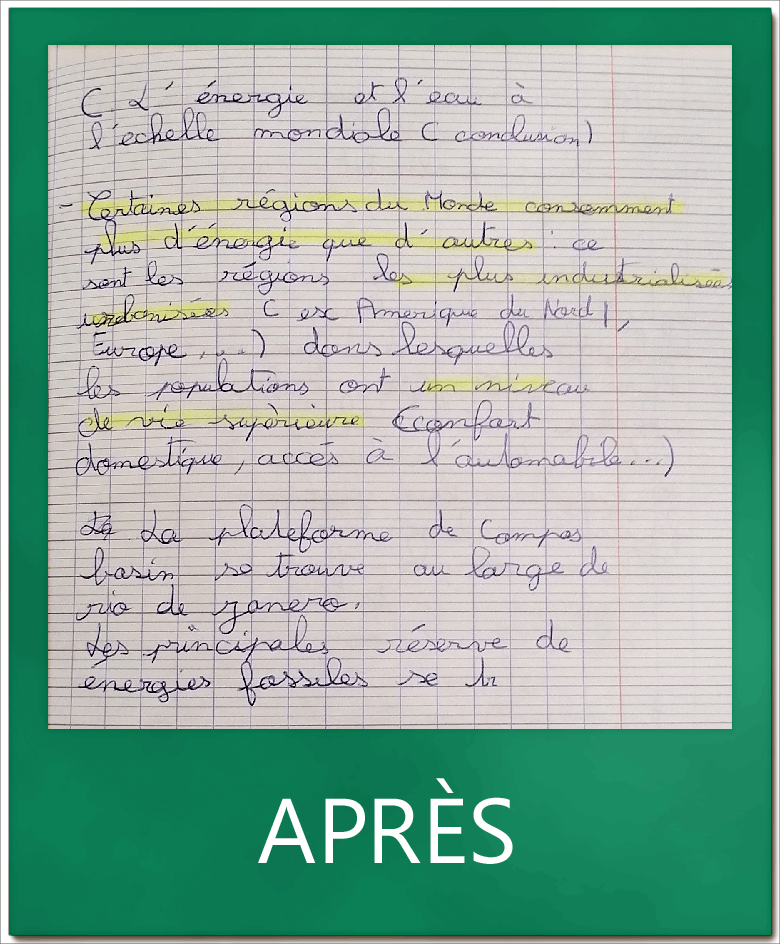 C L' énergie et l'eau à
l'echelle mondiale ( conclusion)
- Certaines régions du Monde consomment
plus d'énergie que d' autres : ce
sont les régions les plus industrialisées
urbanisées ( ex Amerique du Nord ,
Europe, ...) dans lesquelles
les populations ont un niveau
de vie supèrieure (confort
domestique, accés à l'automobile...)
La plateforme de Campos
basin se trouve au large de
rio de janero.
Les principales réserve de
énergies fossiles se tr
APRÈS